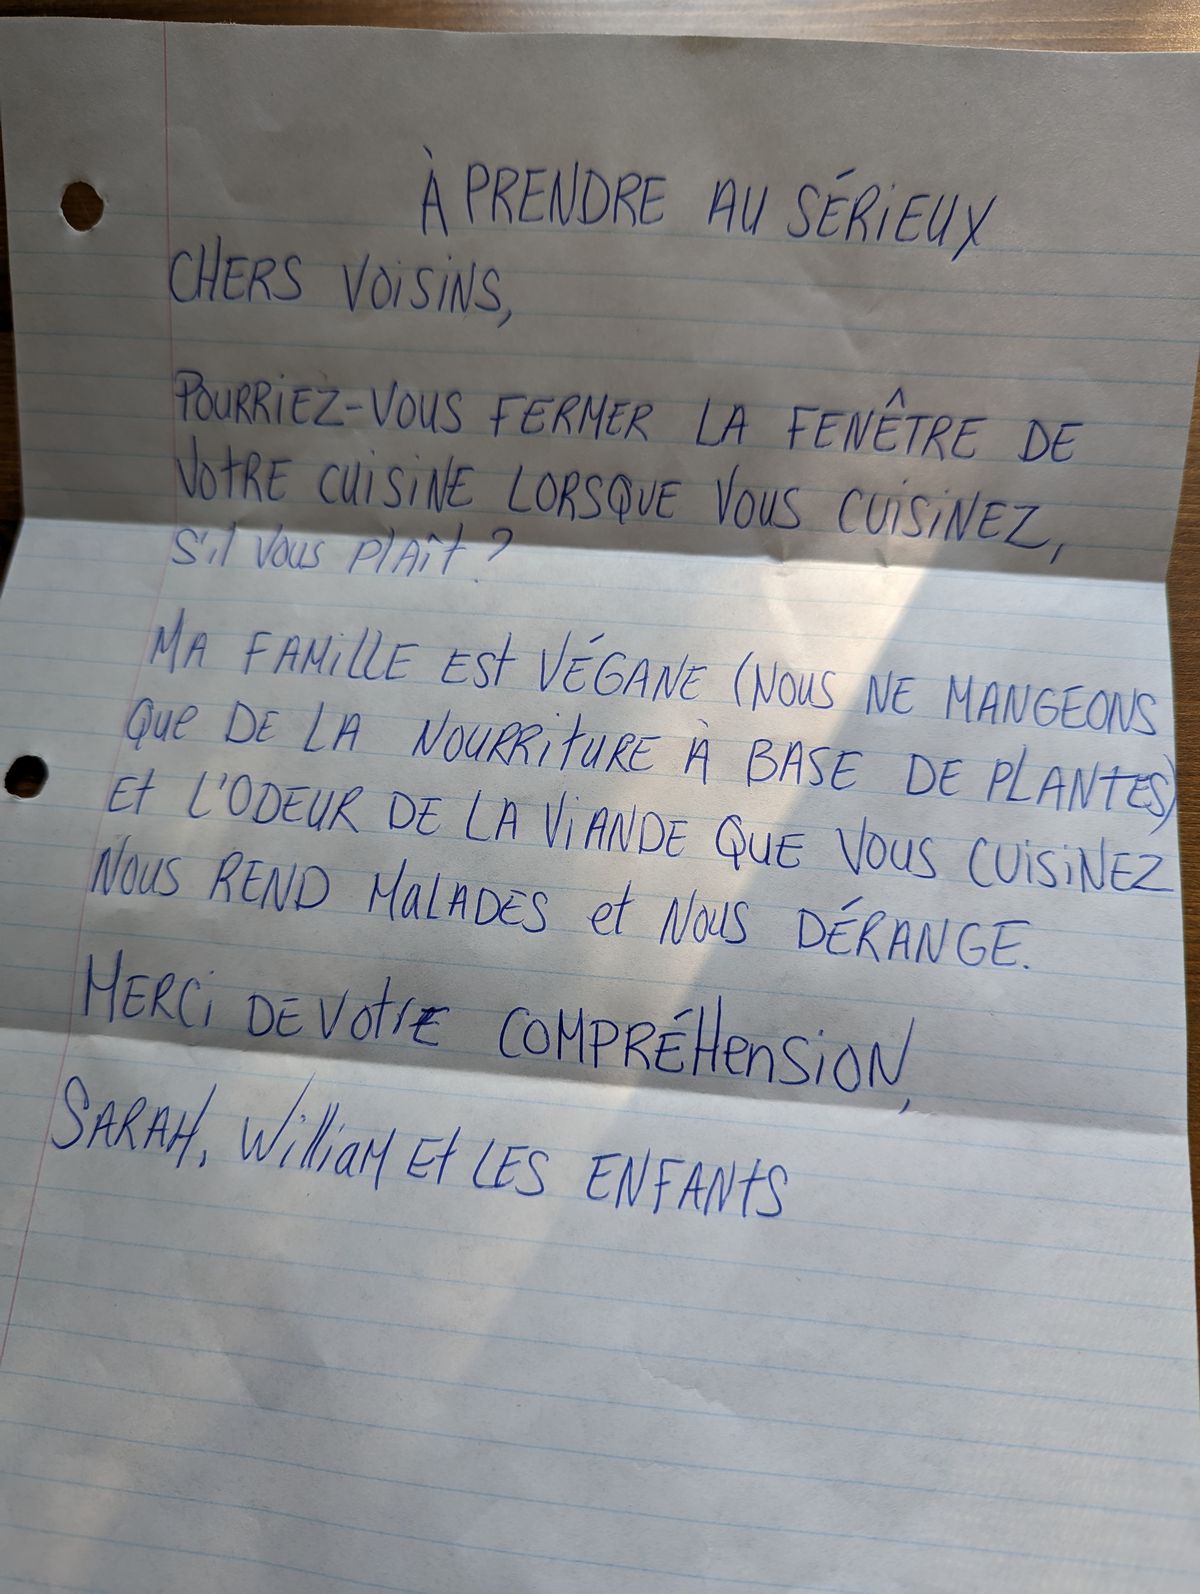 À PRENDRE AU SÉRIEUX
CHERS VOISINS,
POURRIEZ-VOUS FERMER LA FENÊTRE DE
VOTRE CUISINE LORSQUE VOUS CUISINEZ,
S'il VOUS PlAÎt?
MA FAMILLE ESt VÉGANE (NOUS NE MANGEONS
QUE DE LA NOURRITURE À BASE DE PLANTES)
Et L'ODEUR DE LA VIANDE QUE VOUS CUISINEZ
NOUS REND MALADES et NOUS DÉRANGE.
MERCI DE VOtRE COMPRÉHENSION,
SARAH, William Et LES ENFANTS